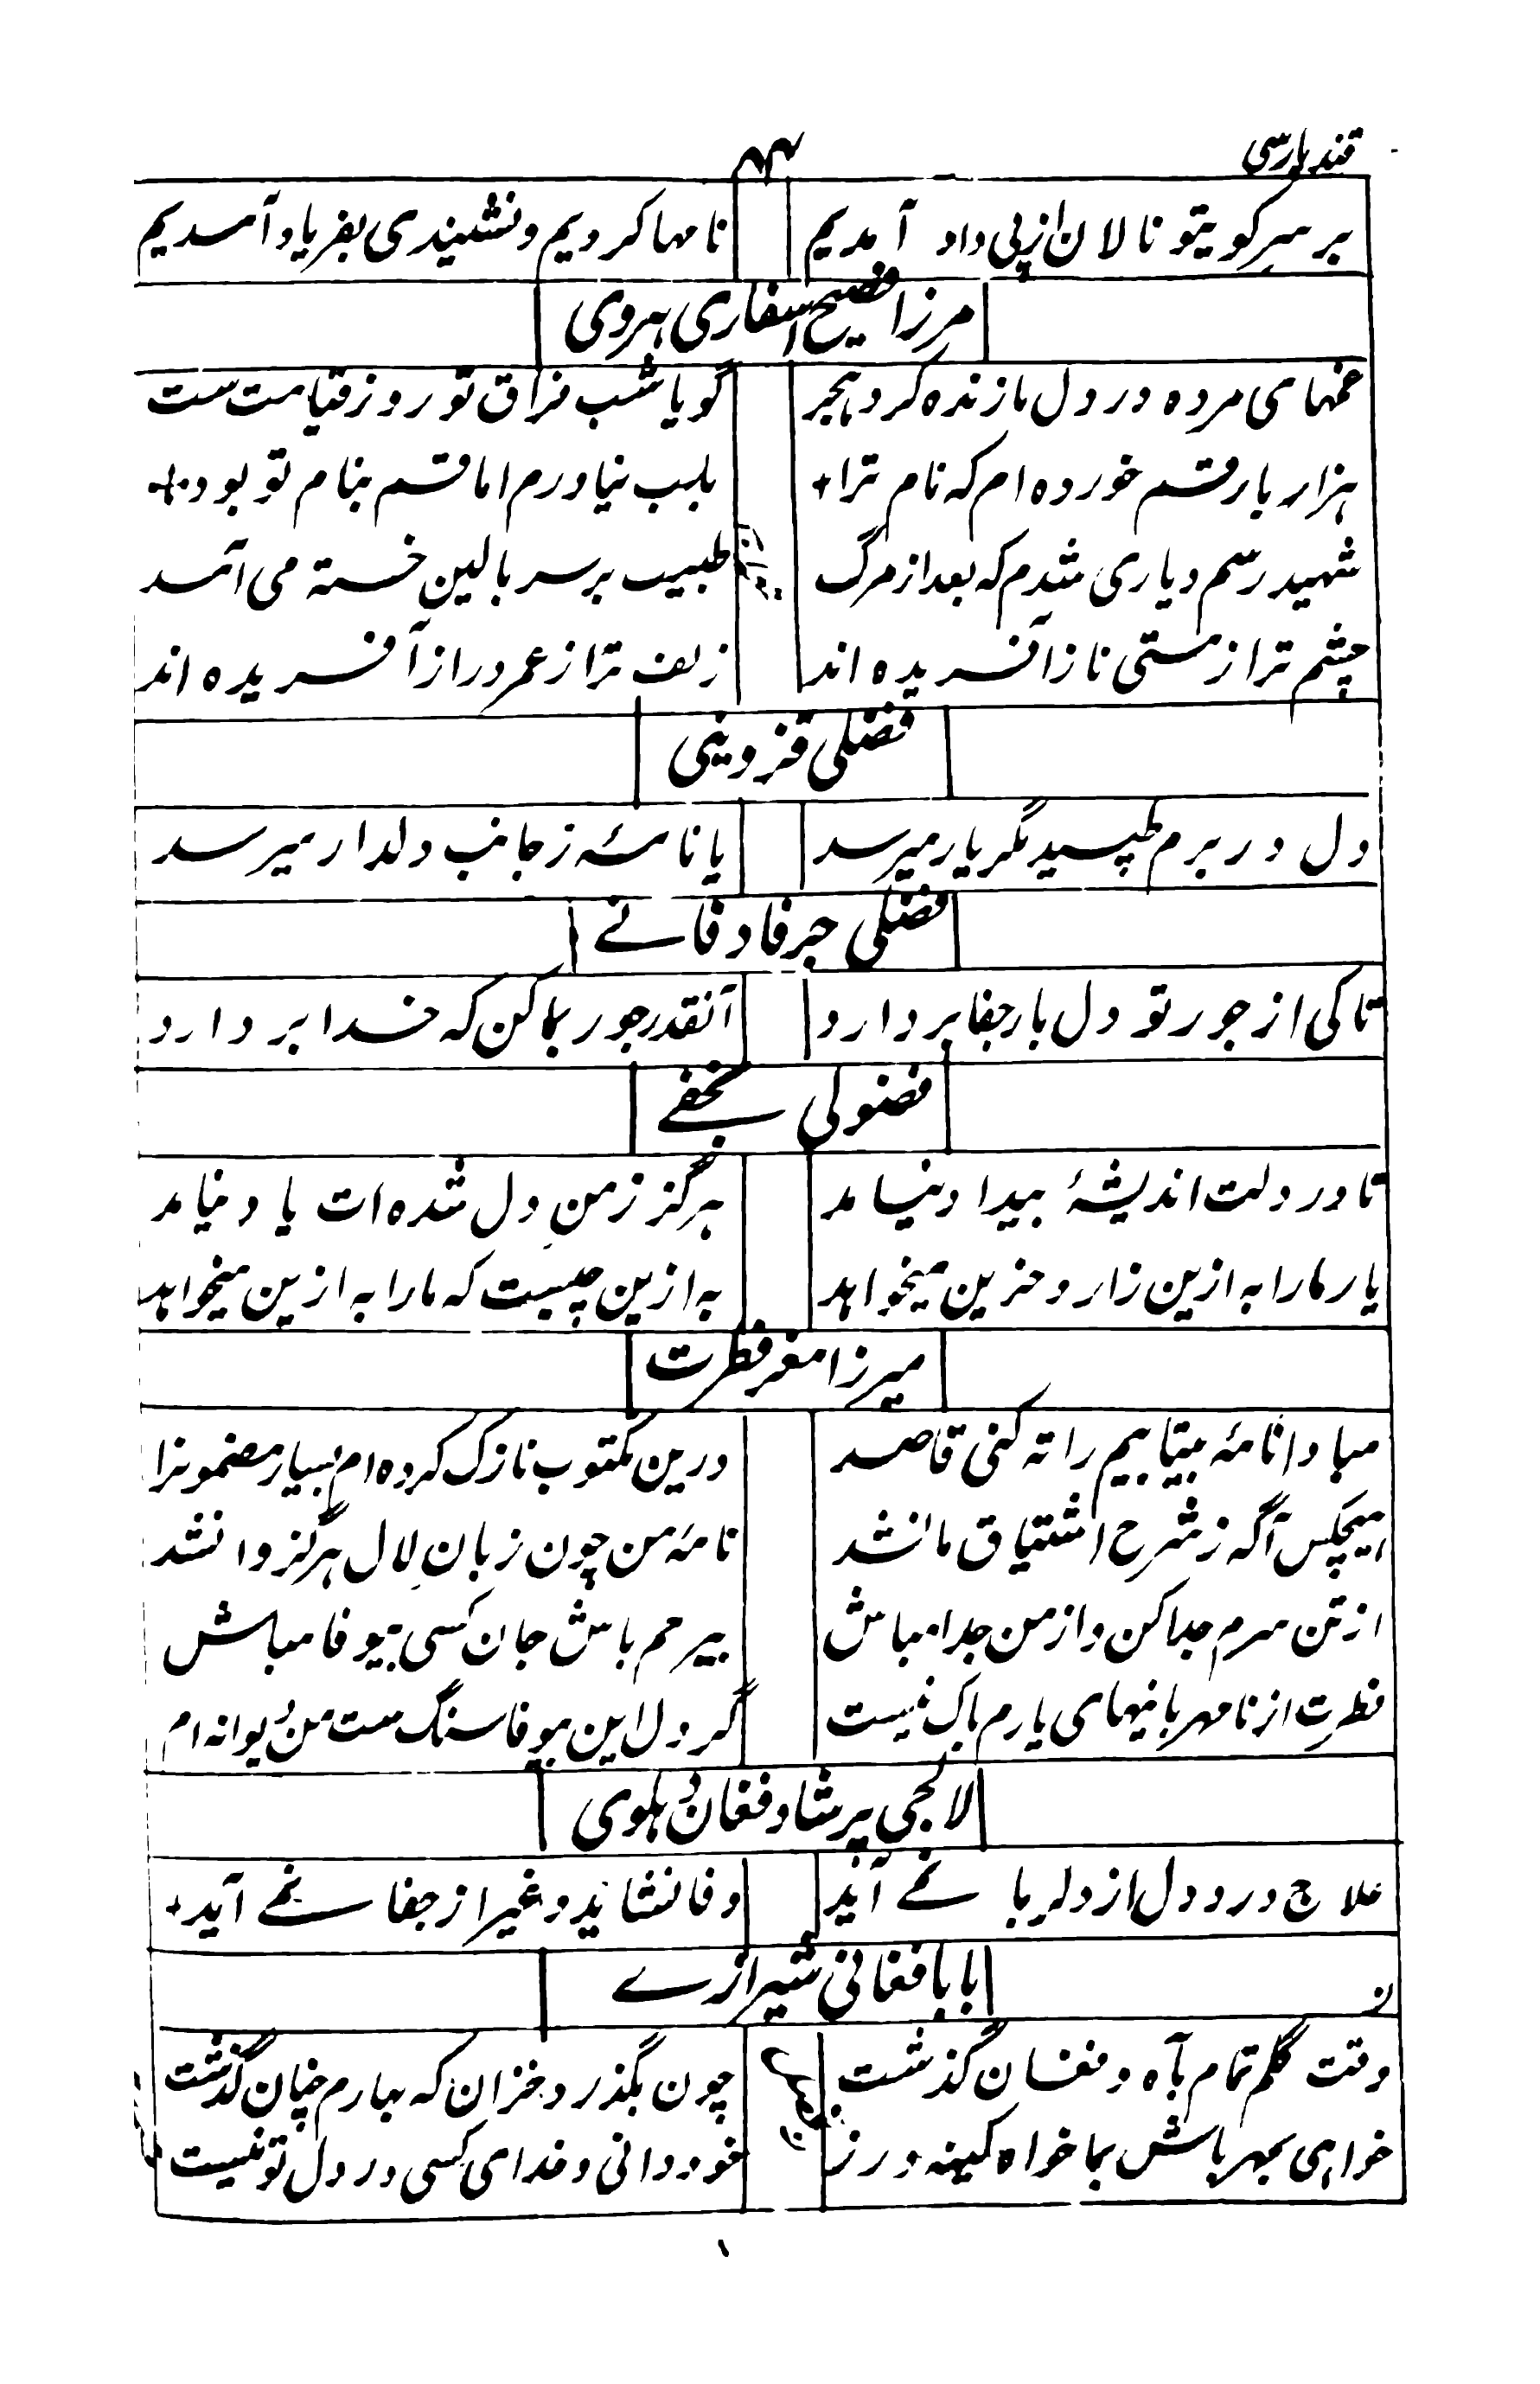 قند پارسی
۴۴
بر سر کویتو نالان از پی داد آمدیم نامها کردیم و نشنیدی بفریاد آمدیم
مرزا فصیح اسفاری ہروی
غمهای مرده در دل ما زنده کرد ہجر گویا شب فراق تو روز قیامت ست
ہزار بار قسم خورده ام که نام ترا+ بلب نیاورم اما قسم بنام تو بود+
شهید رسم دیاری شدم که بعد از مرگ طبیب بر سر بالین خسته می آمد
چشم ترا ز مستی ناز آفریده اند زلف ترا ز عمر دراز آفریده اند
فضلی قزوینی
دل در برم طپسید مگر یار میرسد یا نامۂ ز جانب دلدار میرسد
فضلی جرفادقانے
تا کی از جور تو دل بار جفا بردارد آنقدر جور بما کن که خدا بردارد
فضولی نجفے
تا در دلت اندیشۂ بیداد نیامد ہرگز ز من دل شده ات یاد نیامد
یار ما را به ازین زار و حزین میخواہد به ازین چیست که ما را به ازین میخواہد
میرزا معز فطرت
مبادا نامۂ بیتابیم را ته کنی قاصد درین مکتوب نازک کرده ام بسیار مضمونرا
ہیچکس آگه ز شرح اشتیاق ما نشد نامۂ من چون زبان لال ہرگز وا نشد
از تن سرم جدا کن و از من جدا مباش بیرحم باش جان کسی بیوفا مباش
فطرت از نامهربانیهای یارم باک نیست گر دل این بیوفا سنگ ست من دیوانه ام
لالجی پرشاد فغان دہلوی
علاج درد دل از دلربا نمے آید وفا نشاید و غیر از جفا نمے آید+
بابا فغانی شیرازے
وقت گلم تمام بآه و فغان گذشت چون بگذرد خزان که بهارم چنان گذشت
خواہی بمهر باش بما خواه کینه ورز خود دانی و خدای کسی در دل تو نیست